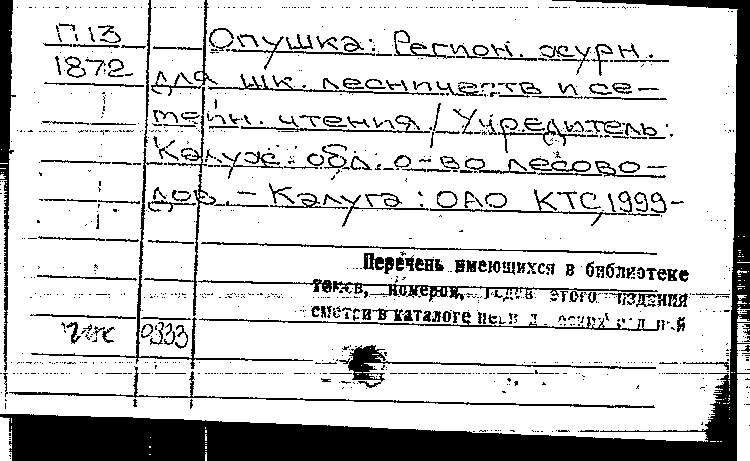 П13
1872
Опушка: Регион. журн.
для шк. лесничеств и се-
мейн. чтения / Учредитель:
Калуж. обл. о-во лесово-
дов. – Калуга: ОАО КТС, 1999-
Перечень имеющихся в библиотеке
томов, номеров, годов этого издания
смотри в каталоге
чтк 0333